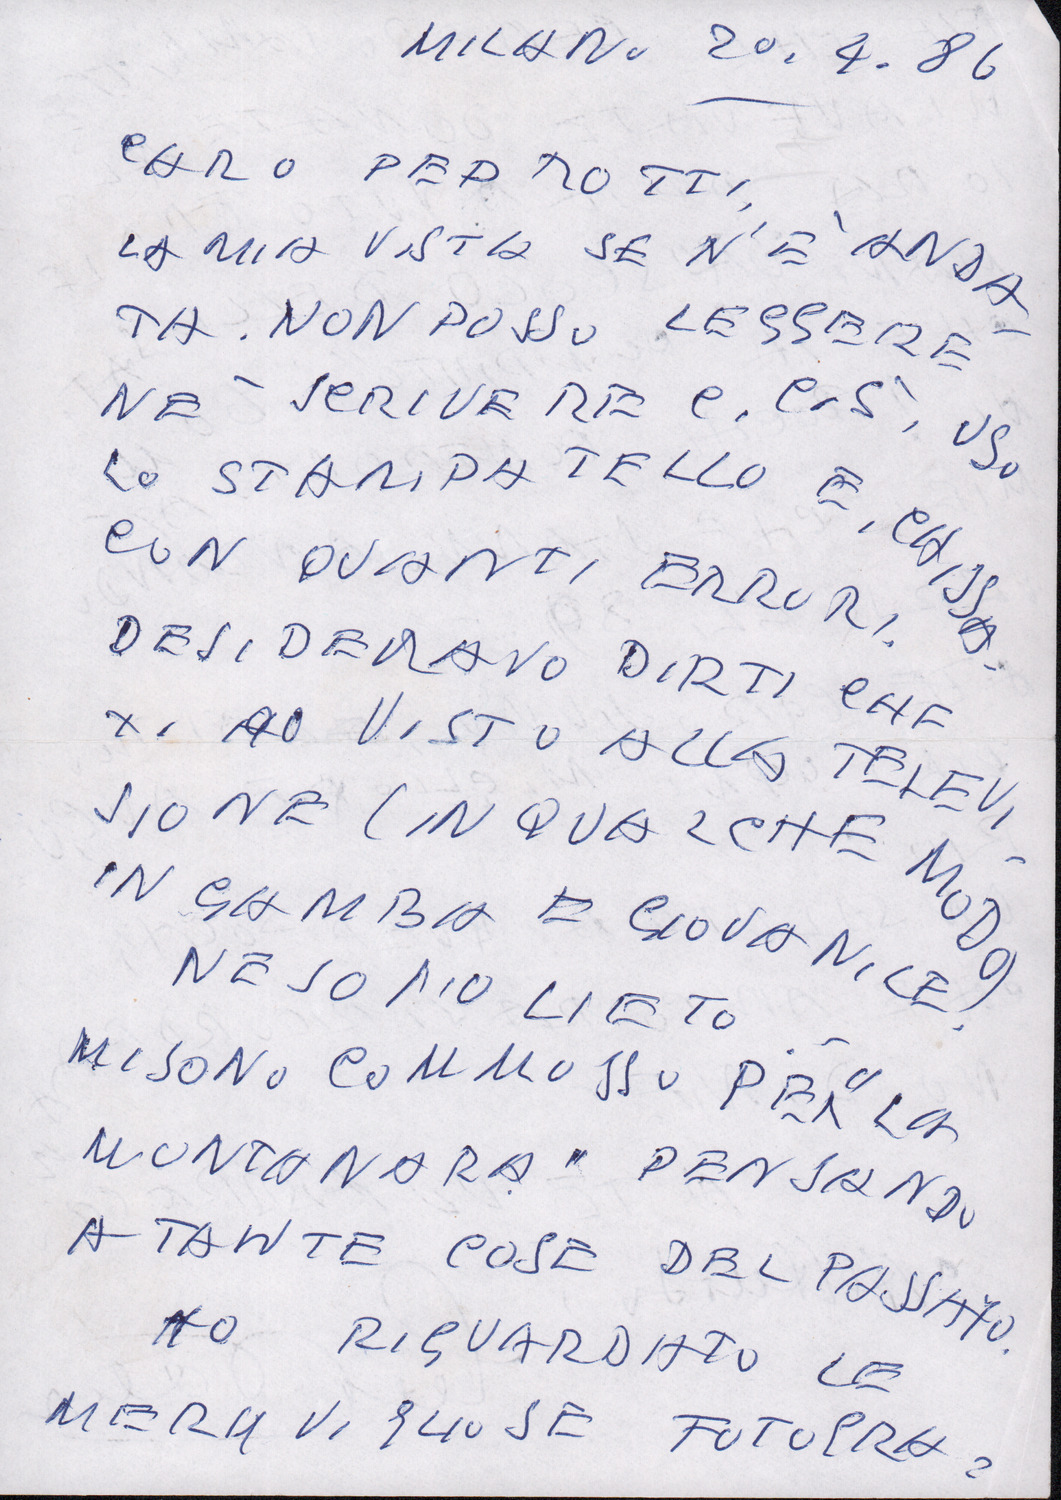 MILANO 20.4.86
CARO PEDROTTI,
LA MIA VISTA SE N'È ANDA-
TA. NON POSSO LEGGERE
NÈ SCRIVERE E, COSÌ, USO
LO STAMPATELLO E, CHISSÀ
CON QUANTI ERRORI.
DESIDERAVO DIRTI CHE
TI HO VISTO ALLA TELEVI-
SIONE (IN QUALCHE MODO)
IN GAMBA E GIOVANILE.
NE SONO LIETO.
MI SONO COMMOSSO PER "LA
MONTANARA" PENSANDO
A TANTE COSE DEL PASSATO.
HO RIGUARDATO LE
MERAVIGLIOSE FOTOGRA=